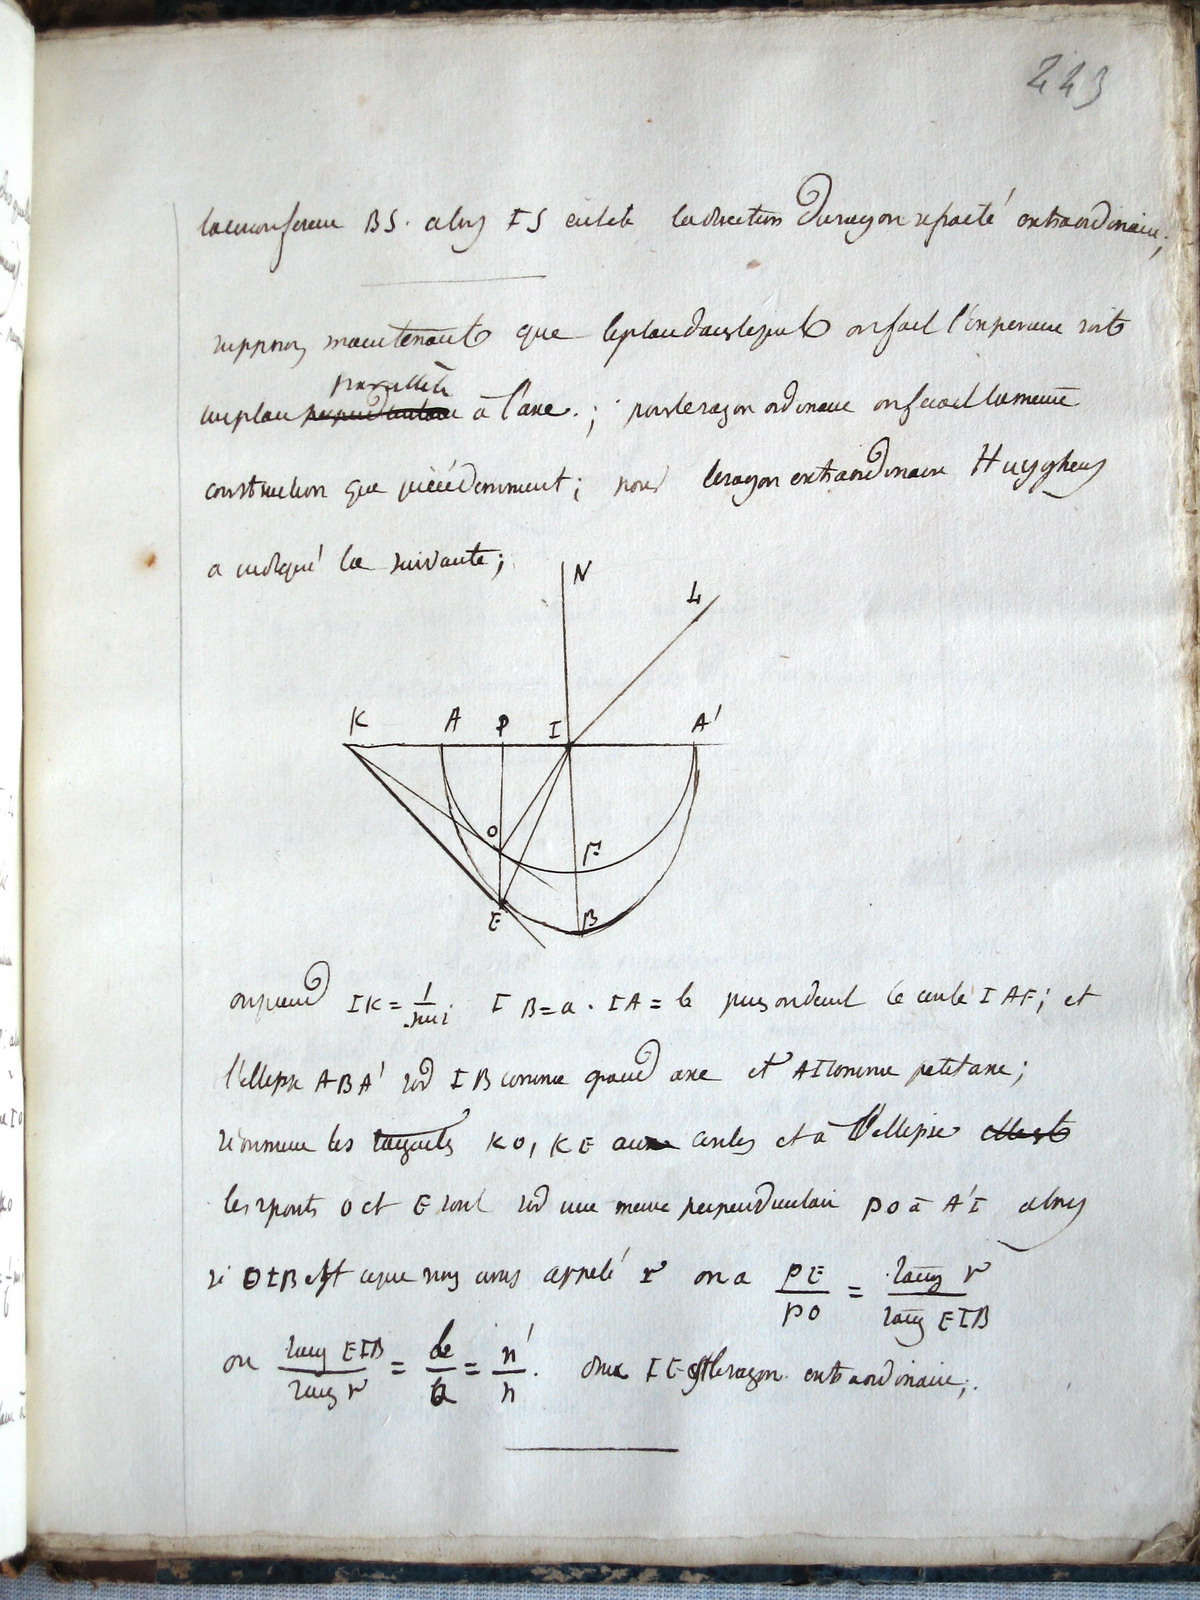 223
la circonference BS. alors IS est la direction du rayon refracté extraordinaire;
supposons maintenant que le plan dans lequel on fait l'experience soit
un plan parallele perpendiculaire à l'axe. ; pour le rayon ordinaire on ferait la meme
construction que précédemment; pour le rayon extraordinaire Huyghens
a indiqué la suivante;
N
L
K A P I A'
O F
E B
on prend IK = 1/sin i I B = a . IA = b puis on decrit le cercle IAF; et
l'ellipse ABA' sur IB comme grand axe et AI comme petit axe;
si on mene les tangentes KO, KE aux cercles et à l'ellipse
les 2 points O et E sont sur une meme perpendiculaire PO à A'I alors
si OIB est ce que nous avons appelé r on a PE/PO = tang r/tang EIB
ou tang EIB/tang r = b/a = n'/n. donc IE est le rayon extraordinaire;.